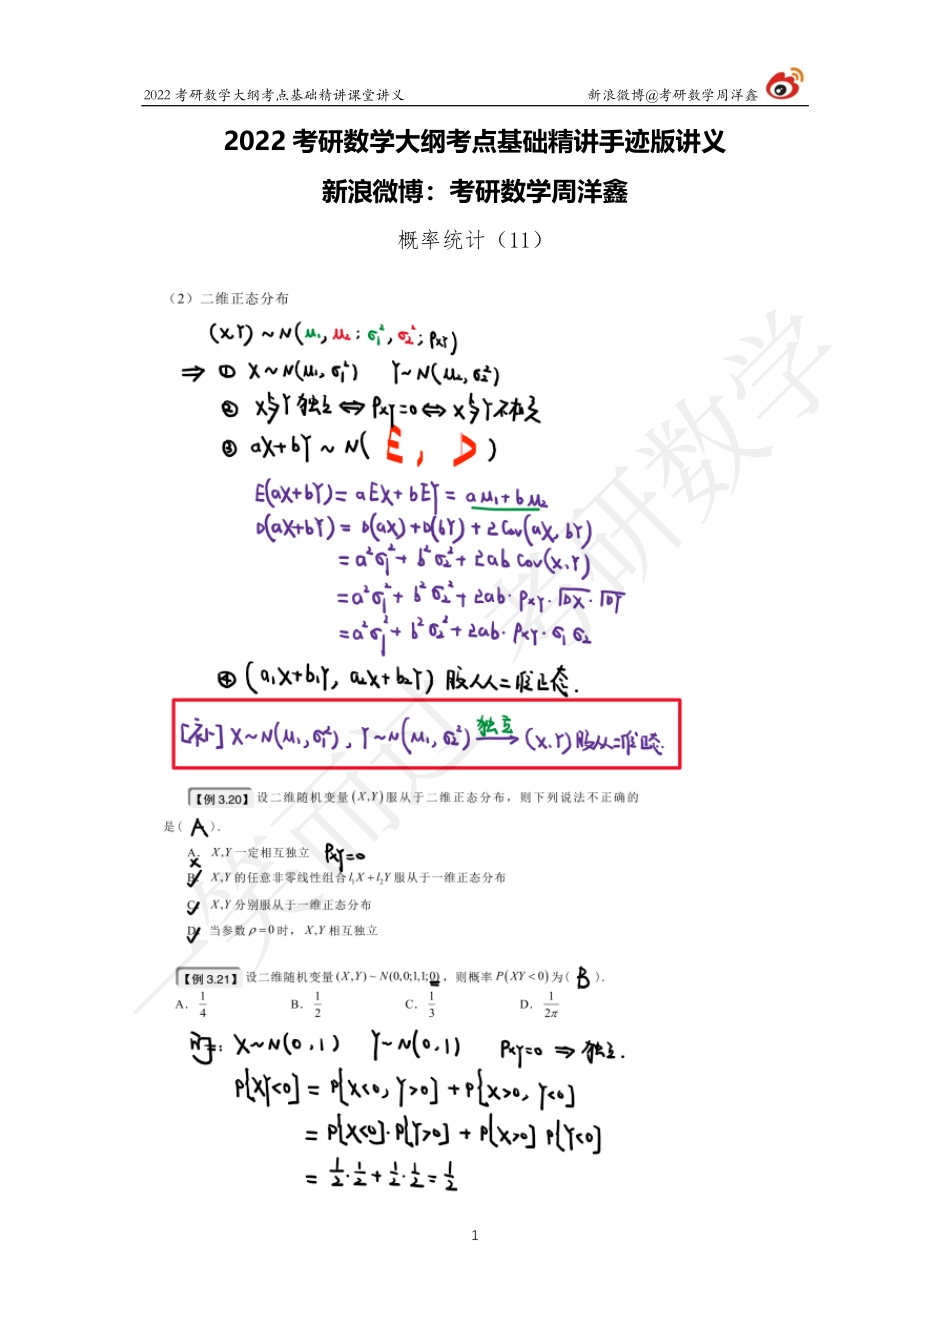 2022 考研数学大纲考点基础精讲课堂讲义 新浪微博@考研数学周洋鑫
2022 考研数学大纲考点基础精讲手迹版讲义
新浪微博：考研数学周洋鑫
概率统计（11）
（2）二维正态分布
(X,Y) ~ N(μ₁, μ₂; σ₁², σ₂²; ρxY)
⇒ ① X~N(μ₁, σ₁²) Y~N(μ₂, σ₂²)
② X与Y独立 ⇔ ρxY=0 ⇔ X与Y不相关
③ aX+bY ~ N( E, D )
E(aX+bY) = aEX + bEY = aμ₁+bμ₂
D(aX+bY) = D(aX)+D(bY)+2Cov(aX, bY)
= a²σ₁² + b²σ₂² + 2ab Cov(X,Y)
= a²σ₁² + b²σ₂² + 2ab·ρxY·√DX·√DY
= a²σ₁² + b²σ₂² + 2ab·ρxY·σ₁σ₂
④ (a₁X+b₁Y, a₂X+b₂Y) 服从二维正态.
[补] X~N(μ₁,σ₁²), Y~N(μ₁,σ₂²) 独立→ (X,Y)服从二维正态.
【例 3.20】设二维随机变量 (X,Y) 服从于二维正态分布，则下列说法不正确的
是( A ).
A. X,Y 一定相互独立 ρxY=0
×
B. X,Y 的任意非零线性组合 l₁X + l₂Y 服从于一维正态分布
C. X,Y 分别服从于一维正态分布
D. 当参数 ρ = 0 时， X,Y 相互独立
【例 3.21】设二维随机变量 (X,Y) ~ N(0,0;1,1;0)，则概率 P{XY < 0} 为( B ).
A. 1/4 B. 1/2 C. 1/3 D. 1/2π
解: X~N(0,1) Y~N(0,1) ρxY=0 ⇒ 独立.
P{XY<0} = P{X<0, Y>0} + P{X>0, Y<0}
= P{X<0}·P{Y>0} + P{X>0} P{Y<0}
= 1/2·1/2 + 1/2·1/2 = 1/2
1
一笑而过 考研数学